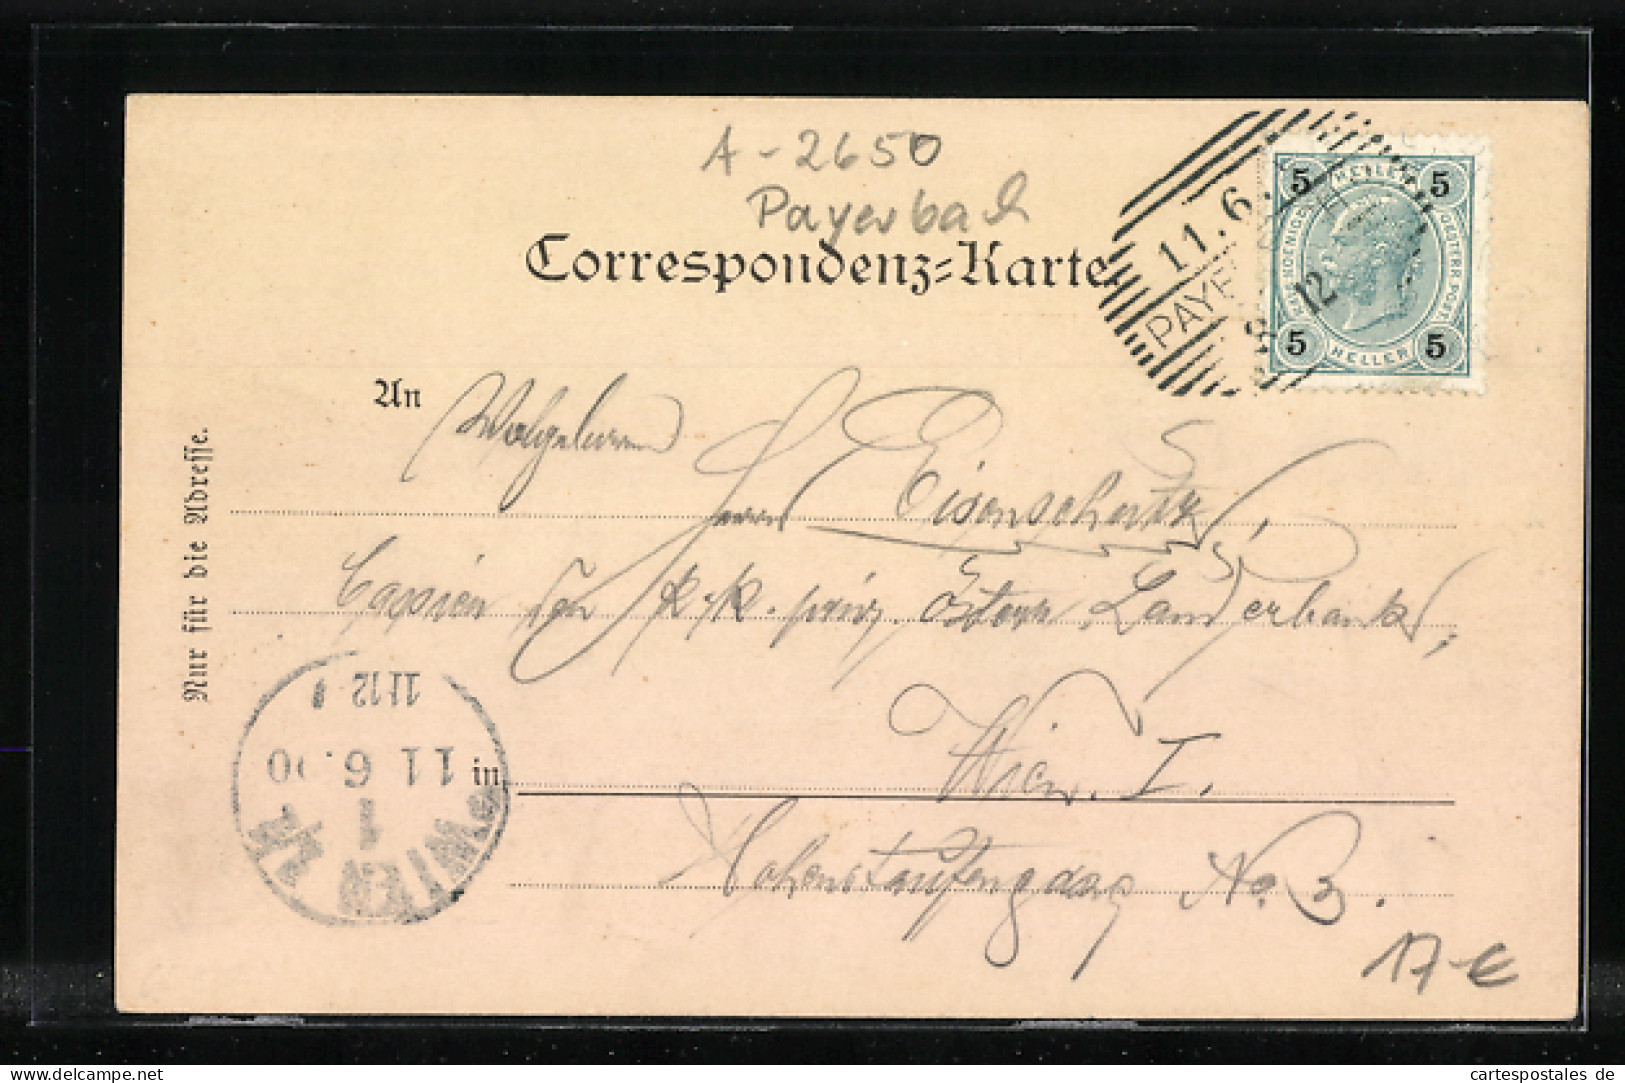 A-2650
Payerbach
Correspondenz-Karte
11.6.
PAYE
12
5 HELLER 5
5 HELLER 5
An Wolgeboren
Herrn Eisenschütz,
Cassier der k. k. priv. österr. Länderbank,
in Wien. I.
Hohenstaufengasse No. 3.
Nur für die Adresse.
WIEN 1
11 6.00
17-€
cartespostales de